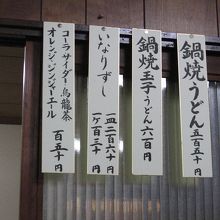 鍋焼うどん 五百五十円
鍋焼玉子うどん 六百円
いなりずし
一ヶ百三十円
コーラ サイダー 烏龍茶
オレンジ・ジンジャーエール
百五十円